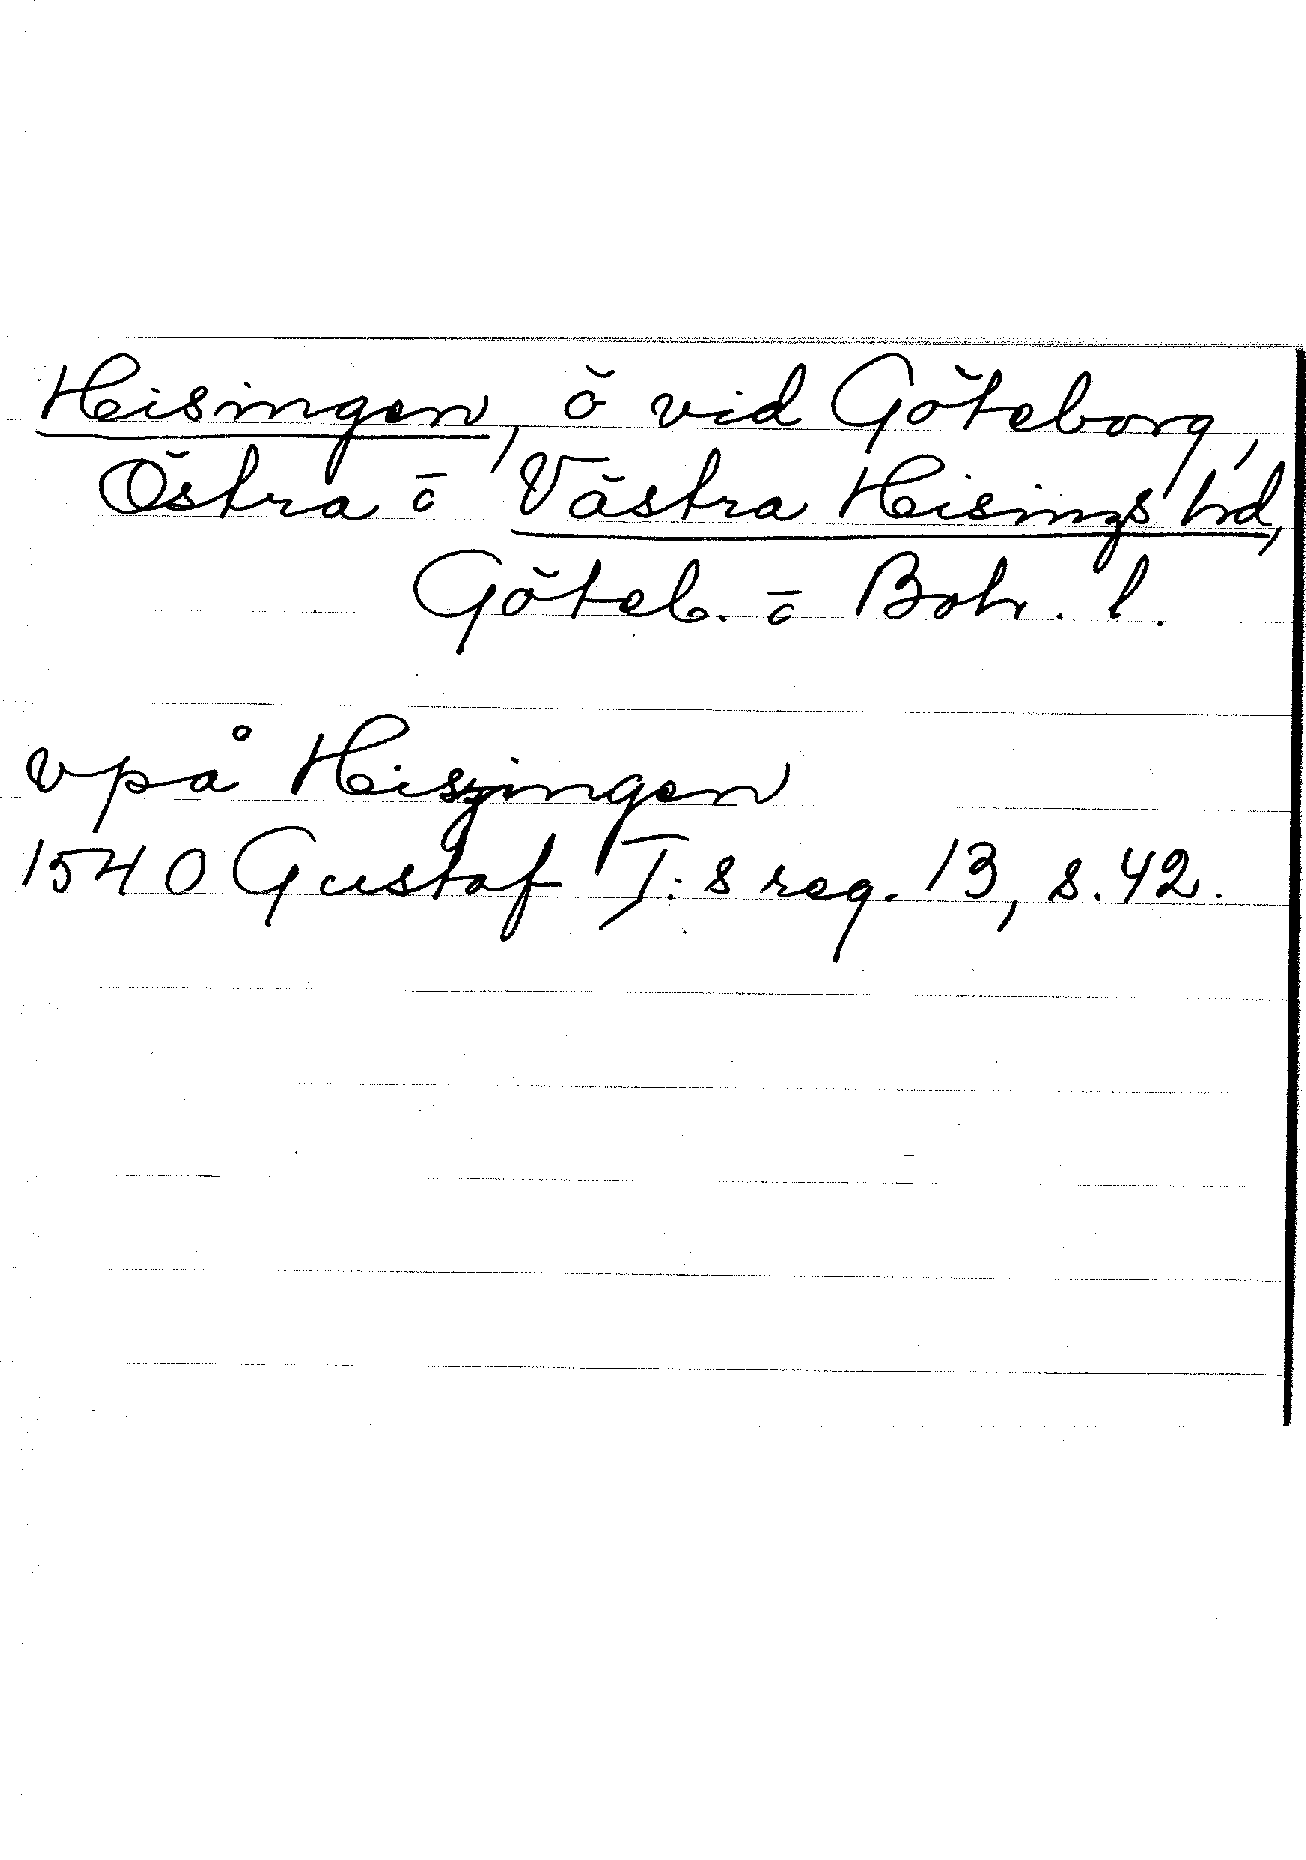 Hisingen, ö vid Göteborg,
Östra o Västra Hisings hd,
Göteb. o Boh. l.
vpå Hiszingen
1540 Gustaf I:s reg. 13, s. 42.